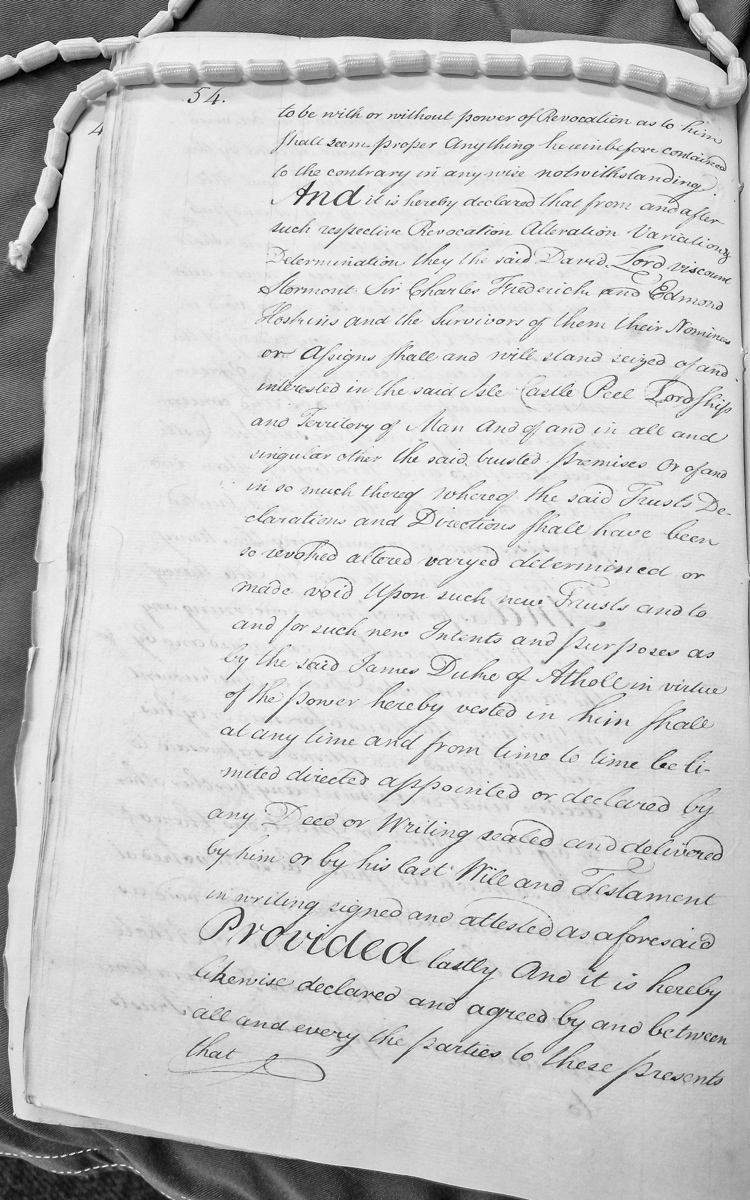 54.
to be with or without power of Revocation as to him
shall seem proper Anything hereinbefore contained
to the contrary in any wise notwithstanding.
And it is hereby declared that from and after
such respective Revocation Alteration Variation &
Determination they the said David Lord viscount
Stormont Sir Charles Frederick and Edmond
Hoskins and the Survivors of them their Nominee
or Assigns shall and will stand seized of and
interested in the said Isle Castle Peel Lordship
and Territory of Man And of and in all and
singular other the said trusted premises Or of and
in so much thereof whereof the said Trusts De-
clarations and Directions shall have been
so revoked altered varyed determined or
made void Upon such new Trusts and to
and for such new Intents and purposes as
by the said James Duke of Atholl in virtue
of the power hereby vested in him shall
at any time and from time to time be li-
mited directed appointed or declared by
any Deed or Writing sealed and delivered
by him or by his last Will and Testament
in writing signed and attested as aforesaid
Provided lastly And it is hereby
likewise declared and agreed by and between
all and every the parties to these presents
that